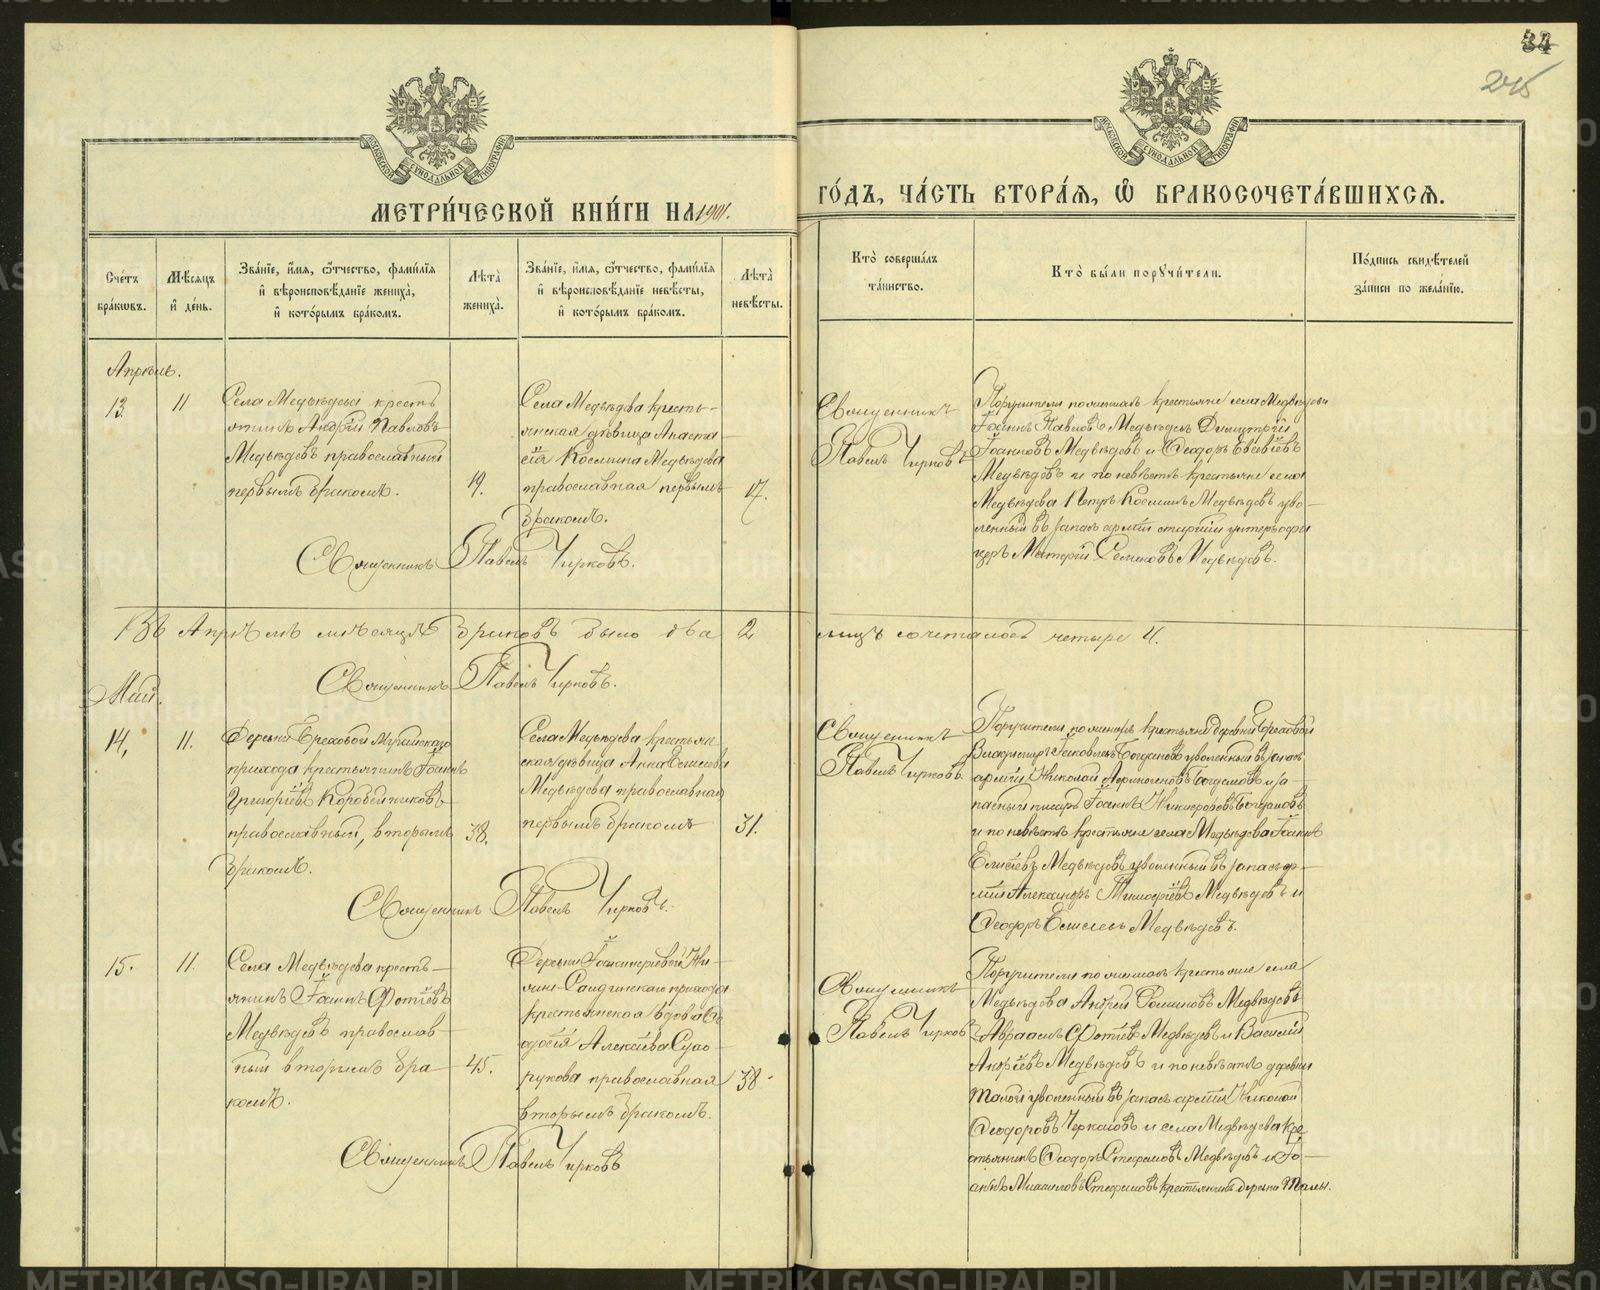 34
245
МОСКОВСКОЙ СУНОДАЛЬНОЙ ТИПОГРАФІИ
МОСКОВСКОЙ СУНОДАЛЬНОЙ ТИПОГРАФІИ
МЕТРИ́ЧЕСКОЙ КНИ́ГИ НА 1901.
ГО́ДЪ, ЧА́СТЬ ВТОРА́Я, Ѡ҆ БРАКОСОЧЕТА́ВШИХСЯ.
Сче́тъ бра́кѡвъ.
Мѣ́сяцъ и҆ де́нь.
Зва́нїе, и҆́мя, ѻ҆́тчество, фами́лїя
и҆ вѣроисповѣ́данїе жениха̀,
и҆ кото́рымъ бра́комъ.
Лѣ́та жениха̀.
Зва́нїе, и҆́мя, ѻ҆́тчество, фами́лїя
и҆ вѣроисповѣ́данїе невѣ́сты,
и҆ кото́рымъ бра́комъ.
Лѣ́та невѣ́сты.
Кто̀ соверша́лъ
та́инство.
Кто̀ бы́ли поручи́тели.
По́дпись свидѣ́телей
за́писи по жела́нїю.
Апрѣль.
13.
11
Села Медвѣдева кресть
янинъ Андрій Павловъ
Медвѣдевъ православный
первымъ бракомъ.
19.
Села Медвѣдева кресть-
янская дѣвица Анаста
сія Косьмина Медвѣдева
православная первымъ
бракомъ.
17.
Священникъ
Павелъ Чирковъ
Поручители по женихѣ крестьяне села Медвѣдева
Іоаннъ Павловъ Медвѣдевъ Димитрій
Іоанновъ Медвѣдевъ и Ѳеодоръ Евсевіевъ
Медвѣдевъ и по невѣстѣ крестьяне села
Медвѣдева Петръ Косминъ Медвѣдевъ уво-
ленный въ запасъ арміи старшій унтеръ офи
церъ Семеновъ Медвѣдевъ.
Священникъ Павелъ Чирковъ.
Въ Апрѣлѣ мѣсяцѣ браковъ было два 2
лицъ сочеталось четыре 4.
Священникъ Павелъ Чирковъ.
Май.
14.
11.
Деревни Ереховой
прихода крестьянинъ Іоаннъ
Григоріевъ Коробейниковъ
православный, вторымъ
бракомъ.
38.
Села Медвѣдева крестьян
ская дѣвица Анна Елисеева
Медвѣдева православная
первымъ бракомъ
31.
Священникъ
Павелъ Чирковъ
Поручители по женихѣ крестьяне деревни Ереховой
Владимиръ Іаковлевъ Богдановъ уволенный въ запасъ
арміи Николай Аѳиногеновъ Богдановъ и за-
пасный писарь Іоаннъ Никифоровъ Богдановъ
и по невѣстѣ крестьяне села Медвѣдева Іоаннъ
Елисѣевъ Медвѣдевъ уволенный въ запасъ ар-
міи Александръ Тимоѳіевъ Медвѣдевъ и
Ѳеодоръ Елисеевъ Медвѣдевъ.
Священникъ Павелъ Чирковъ.
15.
11.
Села Медвѣдева кресть-
янинъ Іоаннъ Фотіевъ
Медвѣдевъ православ
ный вторымъ бра-
комъ.
45.
Деревни
прихода
крестьянская вдова Ев
докія Алексіева Сухо-
рукова православная
вторымъ бракомъ.
38.
Священникъ
Павелъ Чирковъ
Поручители по женихѣ крестьяне села
Медвѣдева Андрей Фоминовъ Медвѣдевъ
Авраамъ Фотіевъ Медвѣдевъ и Василій
Андріевъ Медвѣдевъ и по невѣстѣ деревни
Талой уволенный въ запасъ арміи Николай
Ѳеодоровъ Черкасовъ и села Медвѣдева кре
стьянинъ Ѳеодоръ Стефановъ Медвѣдевъ и Іо-
аннъ Михаиловъ Стефановъ крестьянинъ деревни Талы.
Священникъ Павелъ Чирковъ
METRIKI.GASO-URAL.RU